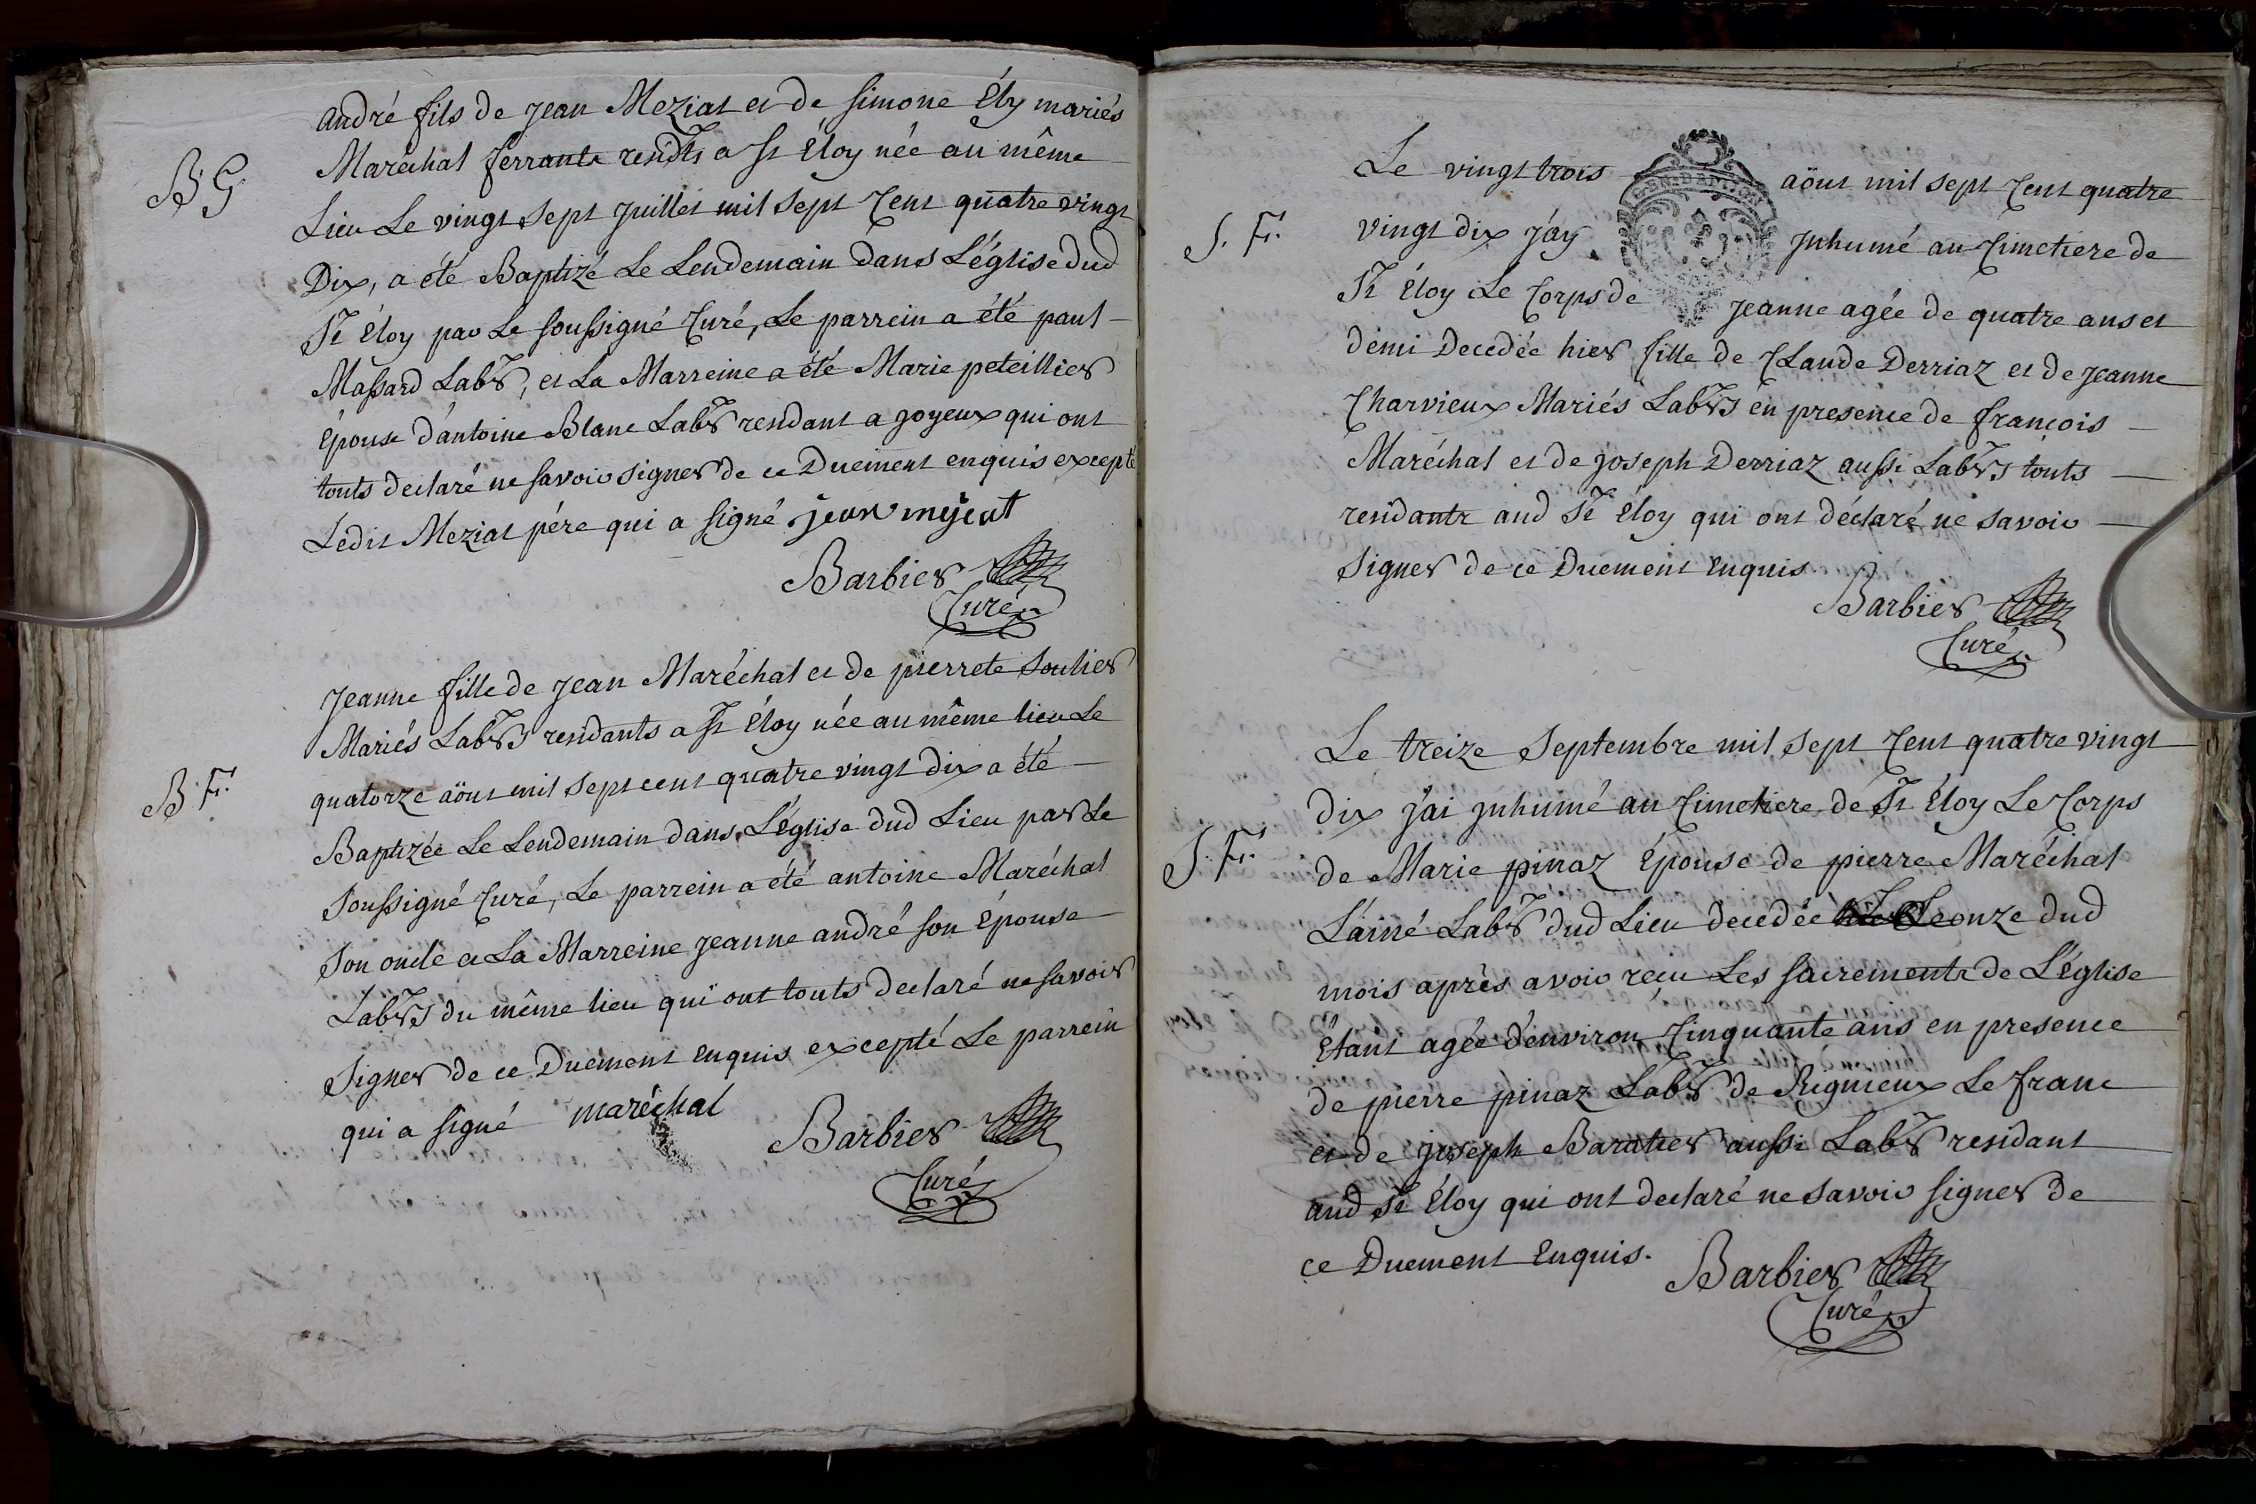 andré fils de jean Meziat et de simone Ély mariés
B. G.
Maréchal ferrants residts a St Éloy née au même
Lieu Le vingt sept juillet mil sept Cent quatre vingt
Dix, a été Baptizé Le Lendemain dans L'église dud
St Éloy par Le soussigné Curé, Le parrein a été paul
Massard Labr, et La Marreine a été Marie peteillier
épouse d'antoine Blanc Labr residant a joyeux qui ont
touts declaré ne savoir signer de ce Duement enquis excepté
Ledit Meziat pére qui a signé jean mejeat
Barbier
Curé
jeanne fille de jean Maréchal et de pierrete Soulier
Mariés Labrs residants a St Éloy née au même lieu Le
B. F.
quatorze aöut mil sept cent quatre vingt dix a été
Baptizée Le Lendemain dans L'église dud Lieu par Le
soussigné Curé, Le parrein a été antoine Maréchal
son oncle et La Marreine jeanne andré son épouse
Labrs du même lieu qui ont touts declaré ne savoir
signer de ce Duement enquis excepté Le parrein
qui a signé maréchal
Barbier
Curé
Le vingt trois aöut mil sept Cent quatre
S. F.
vingt dix j'áy jnhumé au Cimetiere de
St Éloy Le Corps de jeanne agée de quatre ans et
demi Decedée hier fille de Claude Derriaz et de jeanne
Charvieux Mariés Labrs en presence de françois
Maréchal et de joseph Derriaz aussi Labrs touts
residants aud St Éloy qui ont déclaré ne savoir
signer de ce Duement enquis
Barbier
Curé
Le treize Septembre mil sept Cent quatre vingt
dix j'ai jnhumé au Cimetiere de St Éloy Le Corps
S. F.
de Marie pinaz épouse de pierre Maréchal
L'ainé Labr dud Lieu decedée Le onze dud
mois après avoir reçu Les sacrements de L'église
étant agée d'environ Cinquante ans en presence
de pierre pinaz Labr de Rignieux Le franc
et de joseph Baratier aussi Labr residant
aud St Éloy qui ont declaré ne savoir signer de
ce Duement enquis.
Barbier
Curé